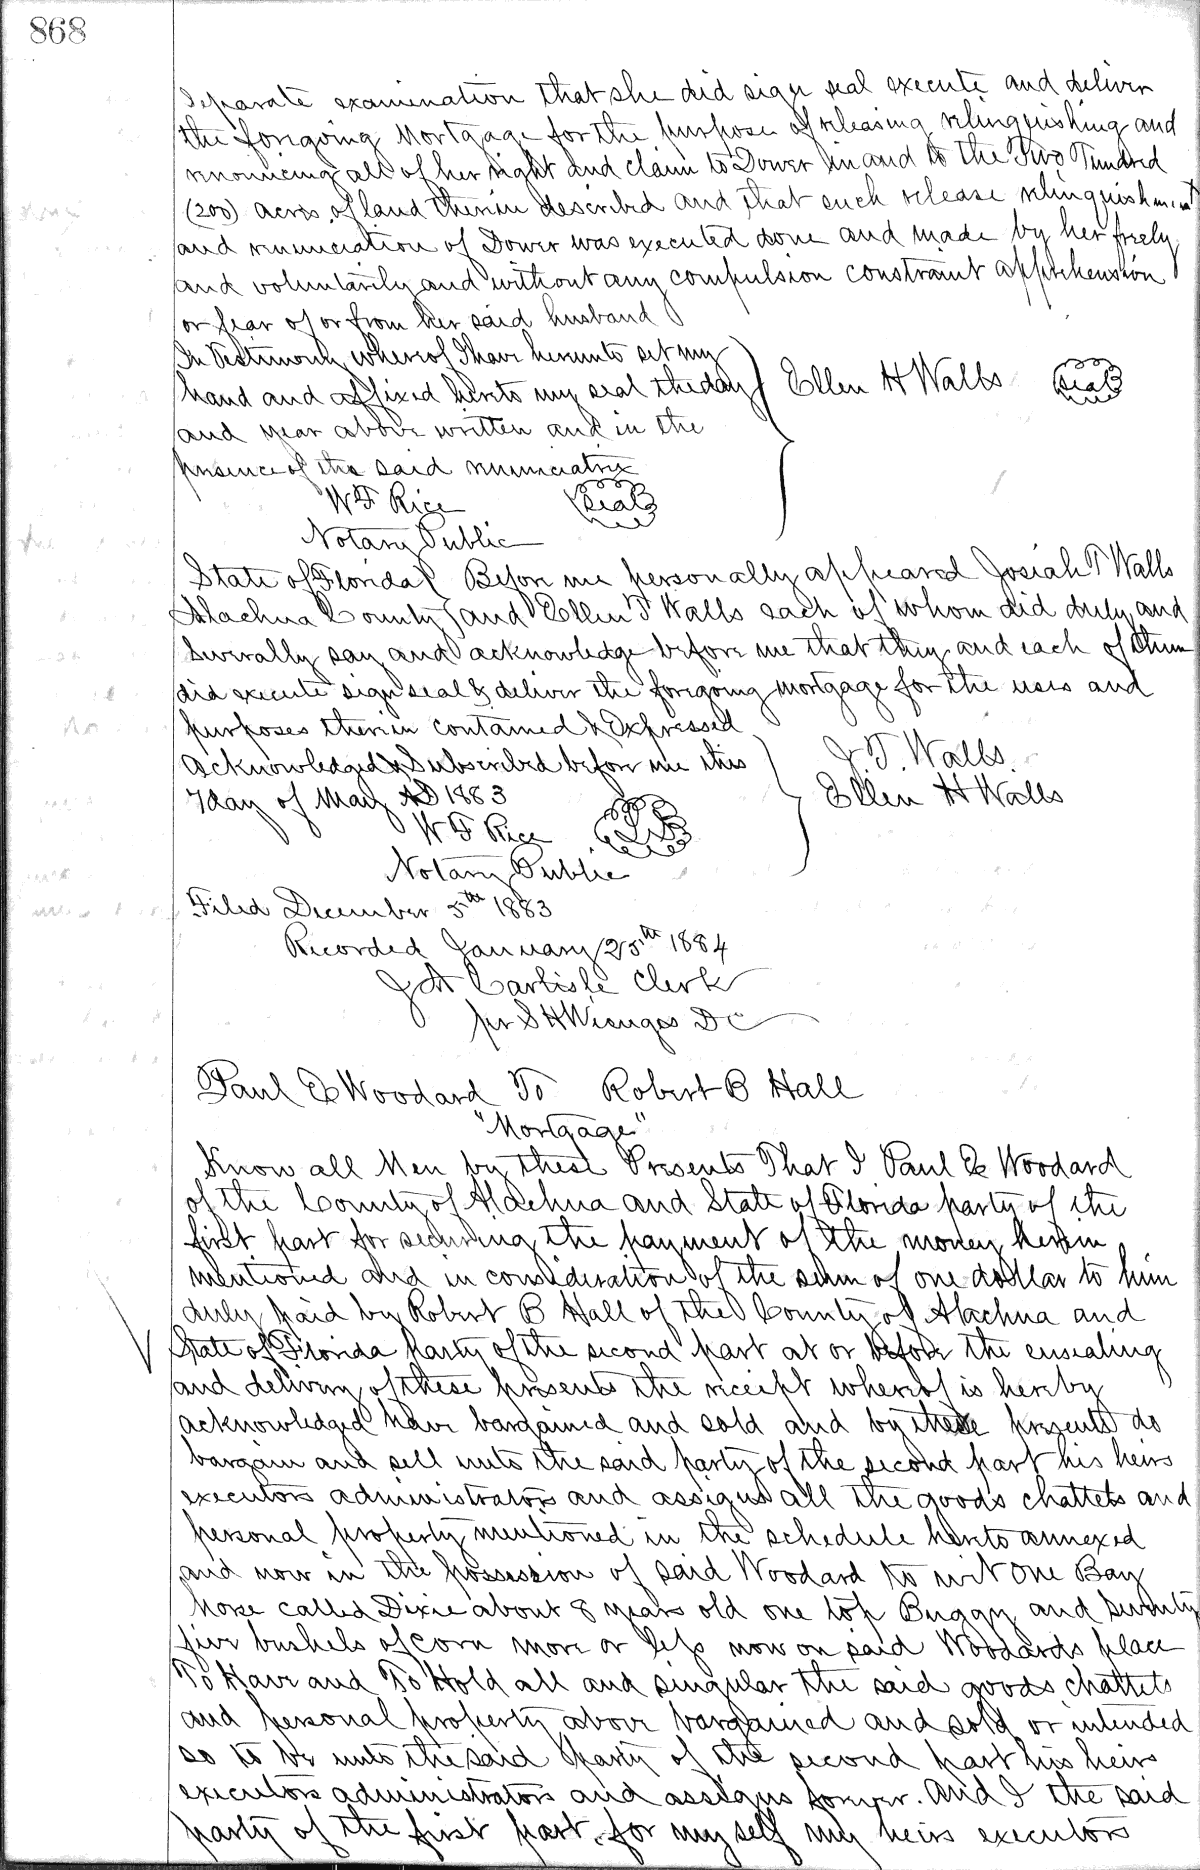 868
separate examination that she did sign seal execute and deliver
the foregoing Mortgage for the purpose of releasing relinquishing and
renouncing all of her right and claim to Dower in and to the Two Hundred
(200) acres of land therein described and that such release relinquishment
and renunciation of Dower was executed done and made by her freely
and voluntarily and without any compulsion constraint apprehension
or fear of or from her said husband
In Testimony whereof I have hereunto set my
hand and affixed hereto my seal the day
and year above written and in the
presence of the said renunciatrix
Ellen H Walls Seal
W F Rice Seal
Notary Public
State of Florida } Before me personally appeared Josiah T Walls
Alachua County } and Ellen T Walls each of whom did duly and
Severally say and acknowledge before me that they and each of them
did execute sign seal & deliver the foregoing mortgage for the uses and
purposes therein contained & Expressed
Acknowledged & Subscribed before me this
7 day of May AD 1883
J. T. Walls
Ellen H Walls
W F Rice LS
Notary Public
Filed December 5th 1883
Recorded January 25th 1884
J A Carlisle Clerk
per S H Wienges DC
Paul E Woodard To Robert B Hall
"Mortgage"
Know all Men by these Presents That I Paul E Woodard
of the County of Alachua and State of Florida party of the
first part for securing the payment of the money herein
mentioned and in consideration of the sum of one dollar to him
duly paid by Robert B Hall of the County of Alachua and
State of Florida party of the second part at or before the ensealing
and delivery of these presents the receipt whereof is hereby
acknowledged have bargained and sold and by these presents do
bargain and sell unto the said party of the second part his heirs
executors administrators and assigns all the goods chattels and
personal property mentioned in the schedule hereto annexed
and now in the possession of said Woodard to wit One Bay
horse called Dixie about 8 years old one top Buggy and seventy
five bushels of corn more or less now on said Woodards place
To Have and To Hold all and singular the said goods chattels
and personal property above bargained and sold or intended
so to be unto the said party of the second part his heirs
executors administrators and assigns forever. And I the said
party of the first part, for my self my heirs executors